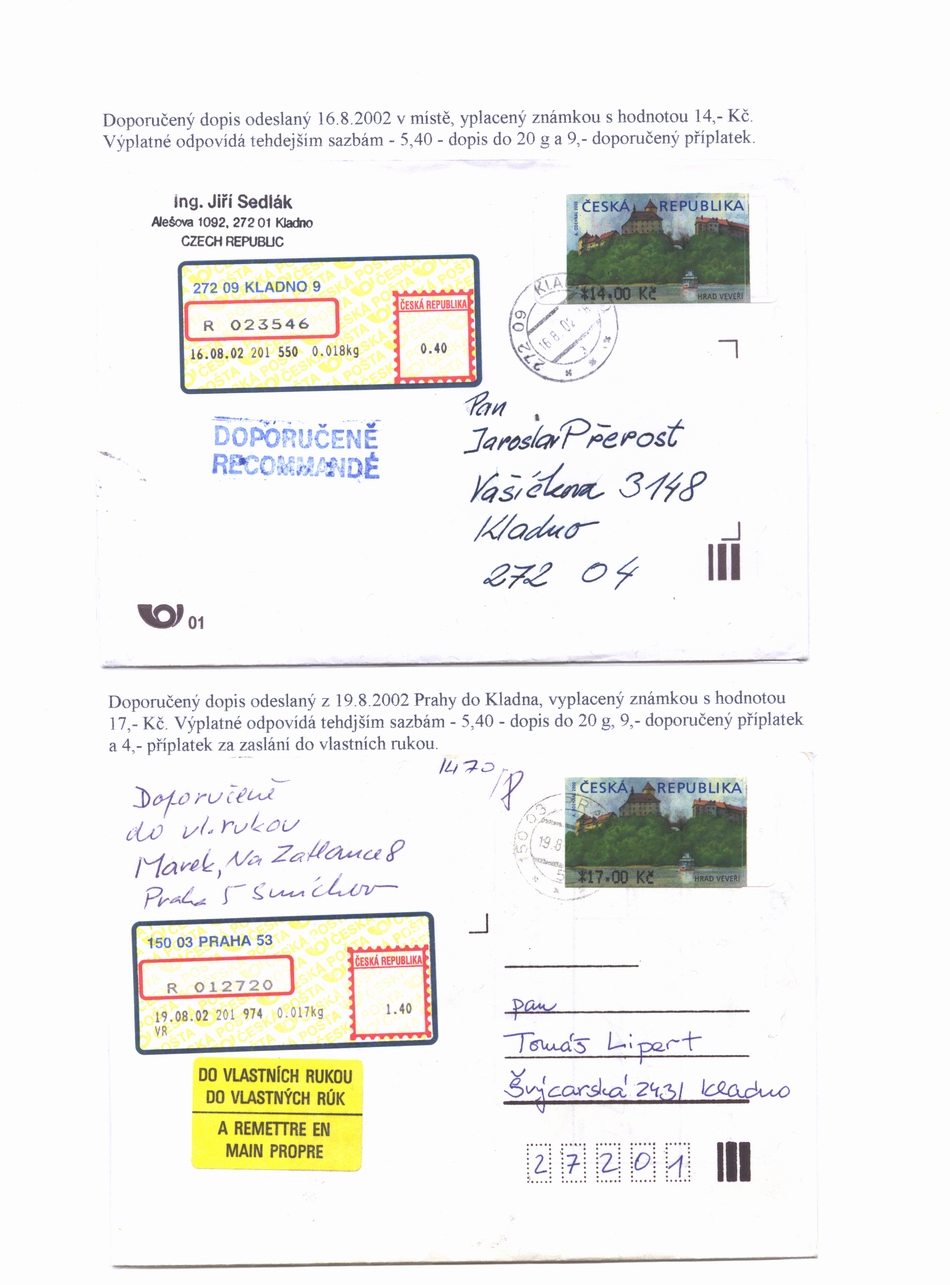 Doporučený dopis odeslaný 16.8.2002 v místě, yplacený známkou s hodnotou 14,- Kč.
Výplatné odpovídá tehdejším sazbám - 5,40 - dopis do 20 g a 9,- doporučený příplatek.
Ing. Jiří Sedlák
Alešova 1092, 272 01 Kladno
CZECH REPUBLIC
ČESKÁ REPUBLIKA
*14.00 Kč
HRAD VEVEŘÍ
272 09 KLADNO 9
R 023546
16.08.02 201 550 0.018kg
ČESKÁ REPUBLIKA
0.40
272 09 KLA
16.8.02
DOPORUČENĚ
RECOMMANDÉ
Pan
Jaroslav Přerost
Vašíčkova 3148
Kladno
272 04
01
Doporučený dopis odeslaný z 19.8.2002 Prahy do Kladna, vyplacený známkou s hodnotou
17,- Kč. Výplatné odpovídá tehdjším sazbám - 5,40 - dopis do 20 g, 9,- doporučený příplatek
a 4,- příplatek za zaslání do vlastních rukou.
1470/8
Doporučeně
do vl. rukou
Marek, Na Zatlance 8
Praha 5 Smíchov
ČESKÁ REPUBLIKA
*17.00 Kč
HRAD VEVEŘÍ
150 03
19.8
150 03 PRAHA 53
R 012720
19.08.02 201 974 0.017kg
VR
ČESKÁ REPUBLIKA
1.40
DO VLASTNÍCH RUKOU
DO VLASTNÝCH RÚK
A REMETTRE EN
MAIN PROPRE
pan
Tomáš Lipert
Švýcarská 2431 Kladno
27201